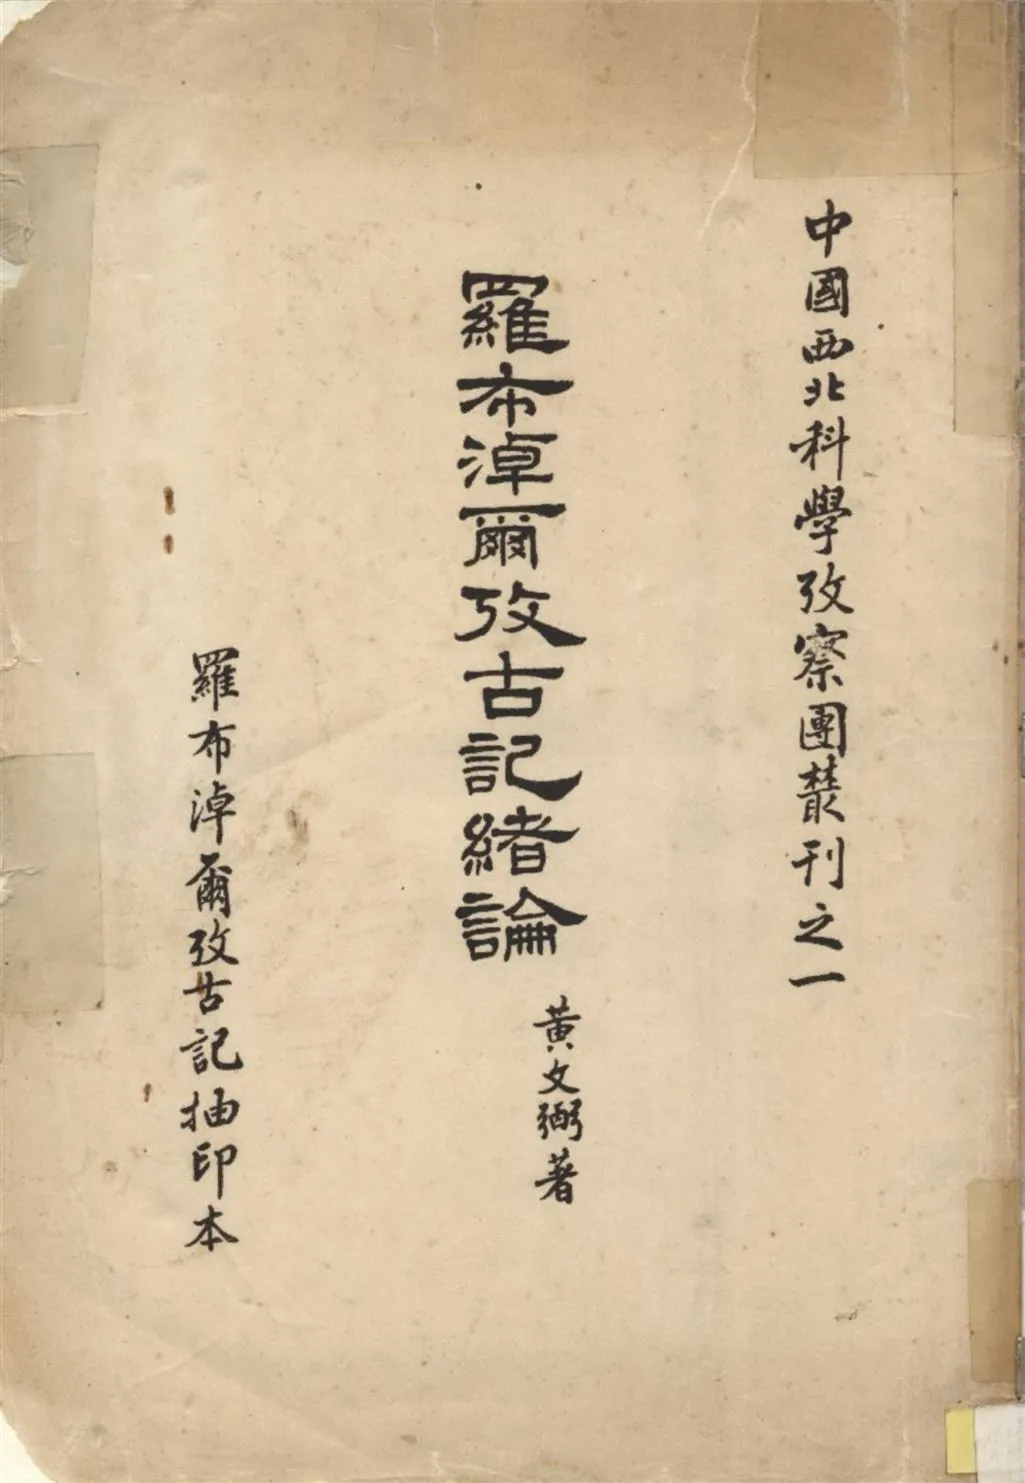 中國西北科學攷察團叢刊之一
羅布淖爾攷古記緒論
黃文弼著
羅布淖爾攷古記抽印本